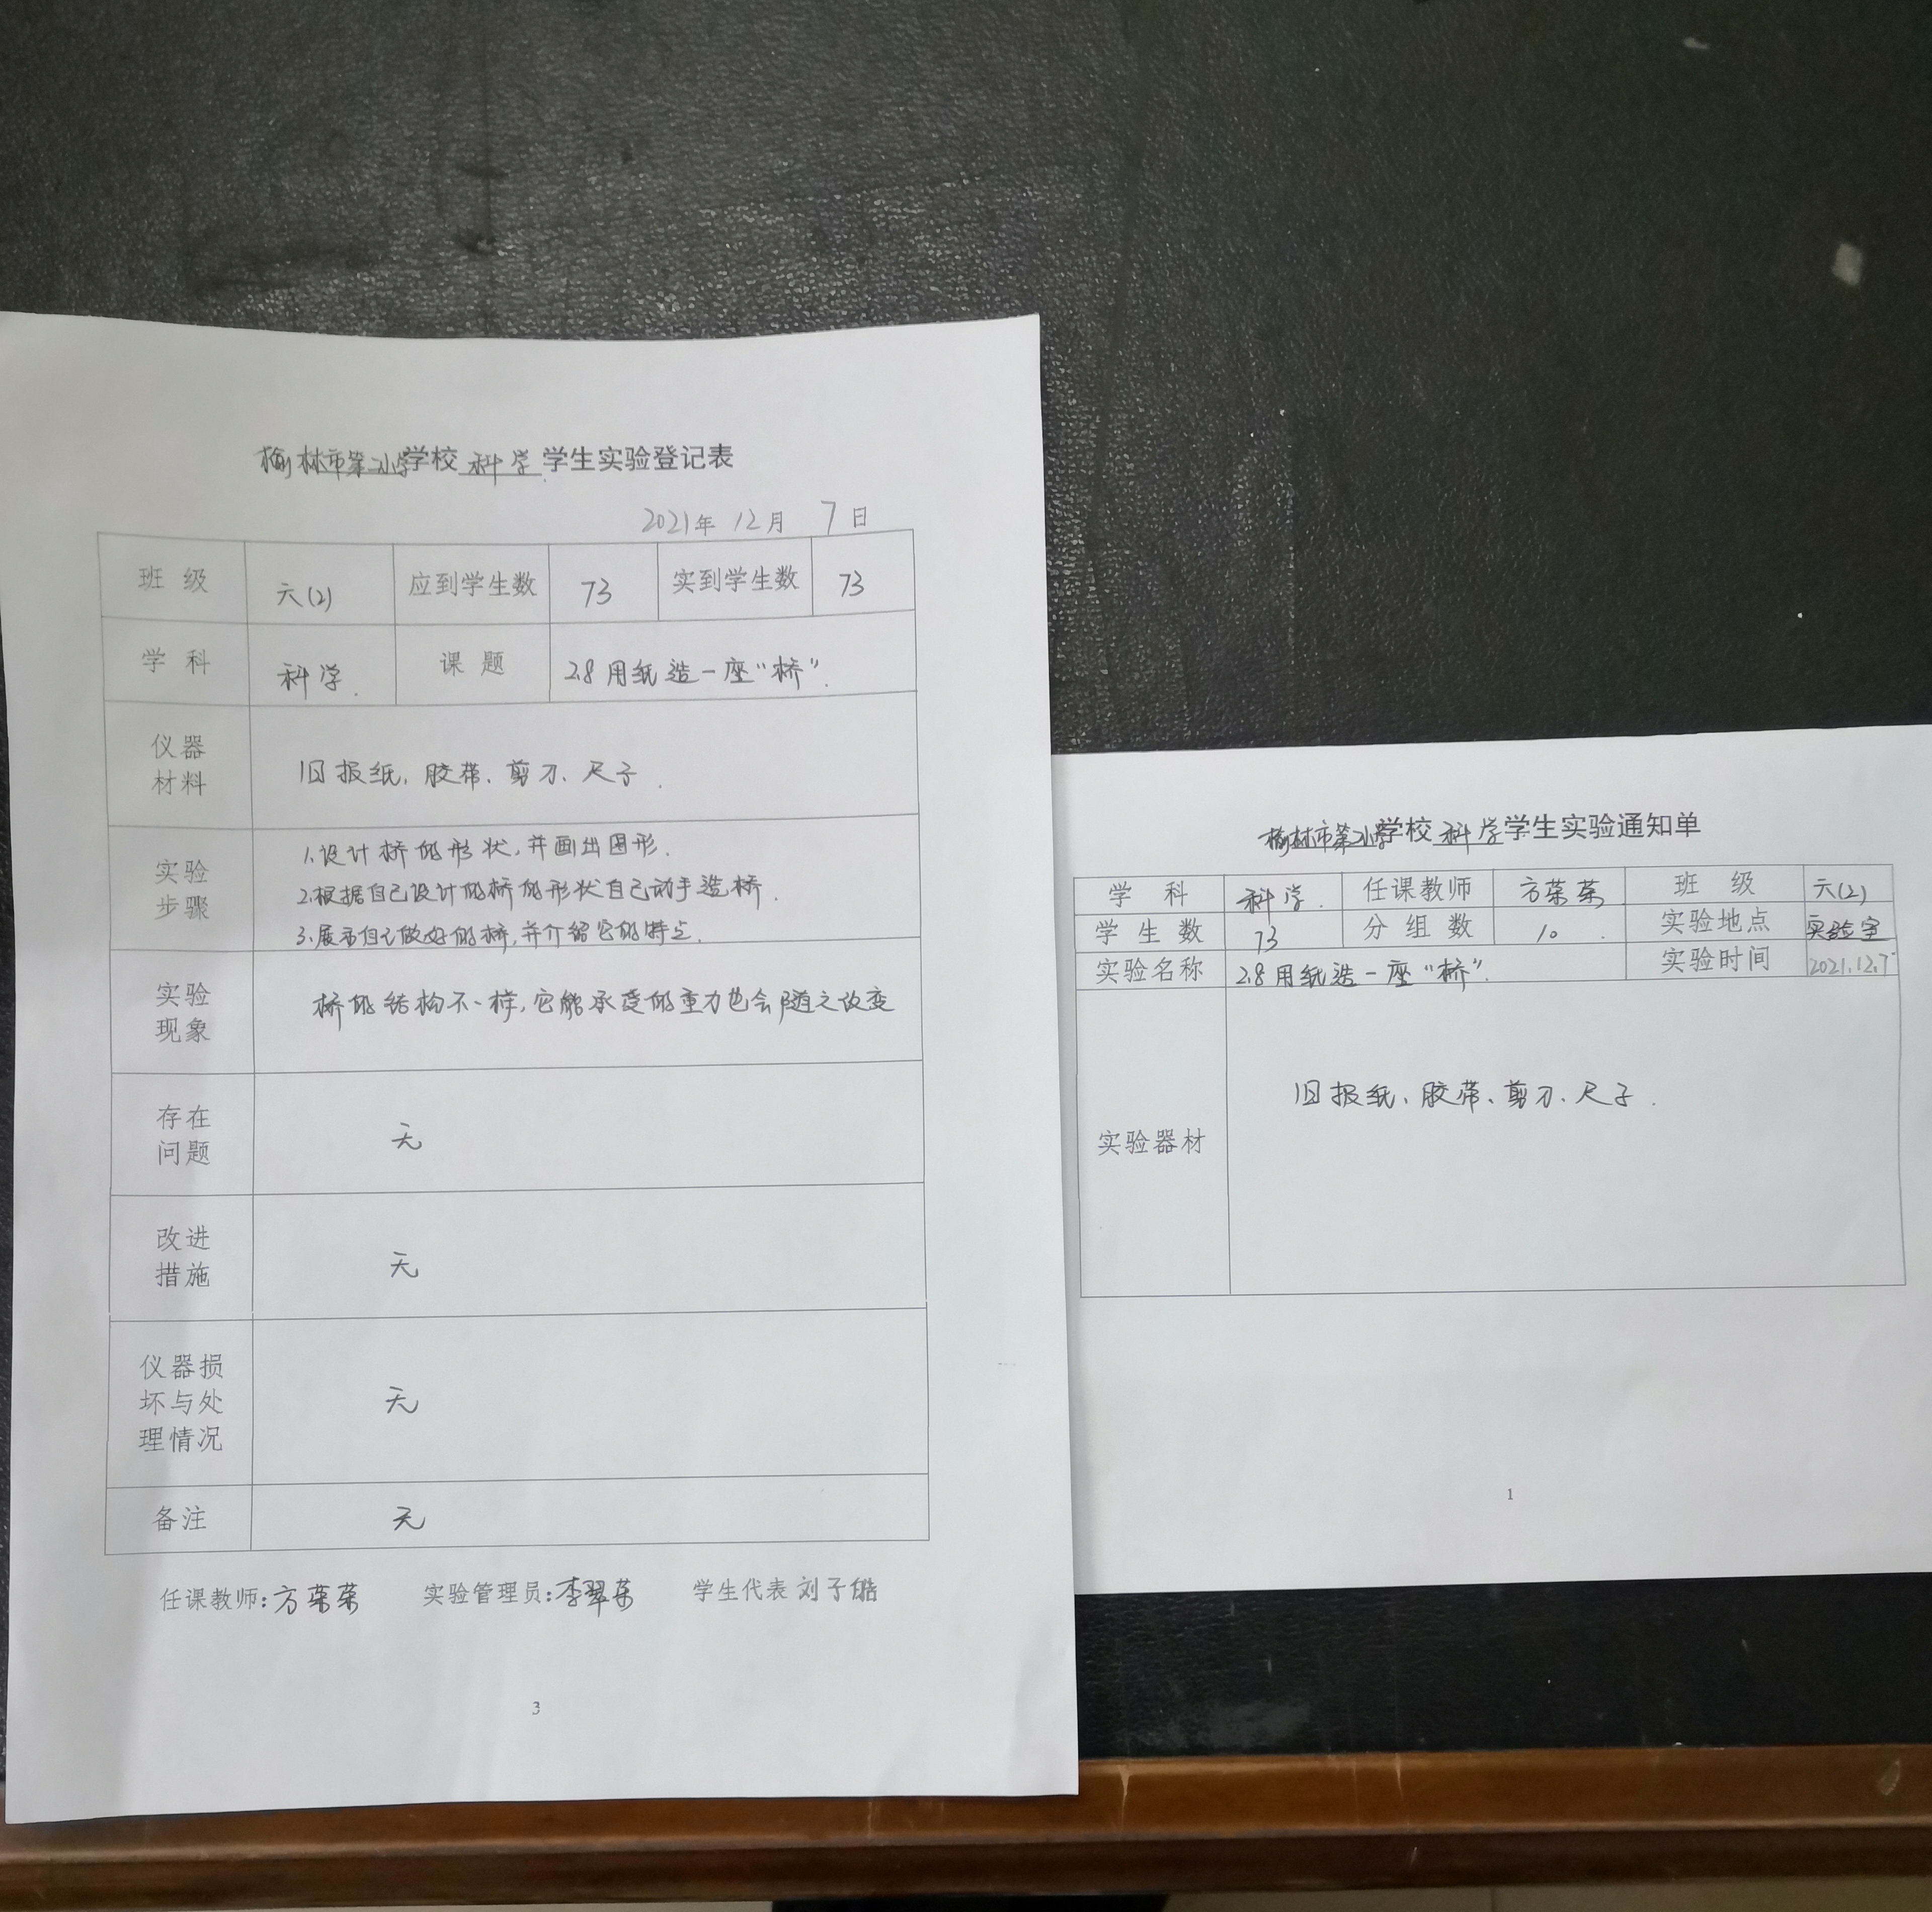 榆林市第小学学校 科学 学生实验登记表
2021年 12月 7日
班 级 六(2) 应到学生数 73 实到学生数 73
学 科 科学. 课 题 2.8 用纸造一座“桥”.
仪器
材料
旧报纸、胶带、剪刀、尺子.
实验
步骤
1.设计桥的形状,并画出图形.
2.根据自己设计的桥的形状自己动手造桥.
3.展示自己做好的桥,并介绍它的特点.
实验
现象
桥的结构不一样,它能承受的重力也会随之改变
存在
问题
无
改进
措施
无
仪器损
坏与处
理情况
无
备注 无
任课教师:方荣荣 实验管理员:李翠 学生代表 刘子皓
3
榆林市第小学学校 科学 学生实验通知单
学 科 科学. 任课教师 方荣荣 班 级 六(2)
学 生 数 73 分 组 数 10 . 实验地点 实验室
实验名称 2.8 用纸造一座“桥”. 实验时间 2021.12.7
实验器材 旧报纸、胶带、剪刀、尺子.
1